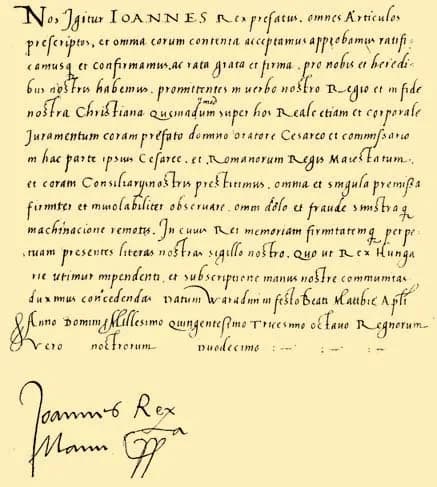 Nos Igitur IOANNES Rex prefatus, omnes Articulos
prescriptos, et omnia eorum contenta acceptamus approbamus ratifi
camusq et confirmamus, ac rata grata et firma, pro nobis et heredi
bus nostris habemus, promittentes in verbo nostro Regio et in fide
nostra Christiana Quemadmodum super hos Reale etiam et corporale
Juramentum coram prefato domino oratore Cesareo et commissario
in hac parte ipsius Cesaree, et Romanorum Regis Maiestatum,
et coram Consiliarys nostris prestitimus, omnia et singula premissa
firmiter et inviolabiliter observare, omni dolo et fraude sinistra q
machinacione remotis, In cuius Rei memoriam firmitatemq perpe
tuam presentes literas nostras sigillo nostro, Quo ut Rex Hunga
rie utimur impendenti, et subscriptione manus nostre communitas
duximus concedendas Datum Waradini in festo Beati Matthie Apli
Anno Domini Millesimo Quingentesimo Tricesimo octavo Regnorum
vero nostrorum duodecimo
Joannes Rex
Manu